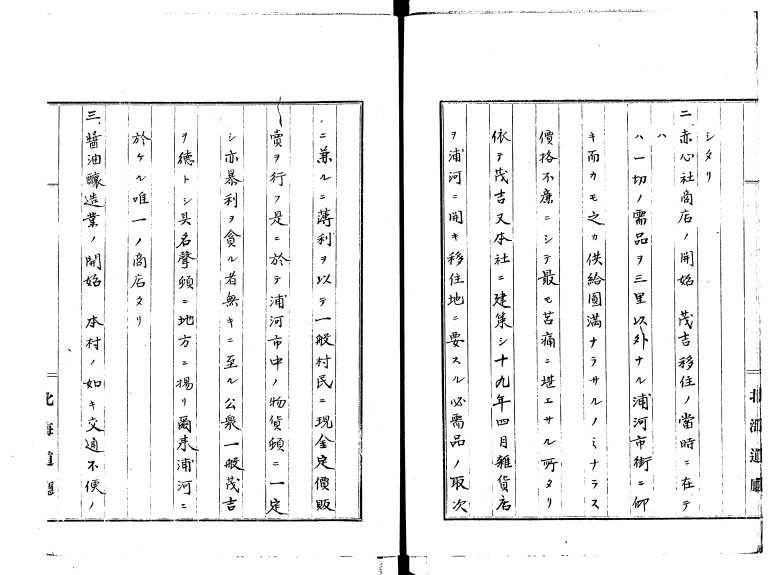 シタリ
二、赤心社商店ノ開始　茂吉移住ノ當時ニ在テ
ハ
ハ一切ノ需品ヲ三里以外ナル浦河市街ニ仰
キ而カモ之カ供給圓滿ナラサルノミナラス
價格不廉ニシテ最モ苦痛ニ堪エサル所タリ
依テ茂吉又本社ニ建策シ十九年四月雜貨店
ヲ浦河ニ開キ移住地ニ要スル必需品ノ取次
ニ兼ルニ薄利ヲ以テ一般村民ニ現金定價販
賣ヲ行フ是ニ於テ浦河市中ノ物貨頓ニ一定
シ亦暴利ヲ貪ル者無キニ至ル公衆一般茂吉
ヲ德トシ其名聲頓ニ地方ニ揚リ爾来浦河ニ
於ケル唯一ノ商店タリ
三、醬油釀造業ノ開始　本村ノ如キ交通不便ノ
北海道廳